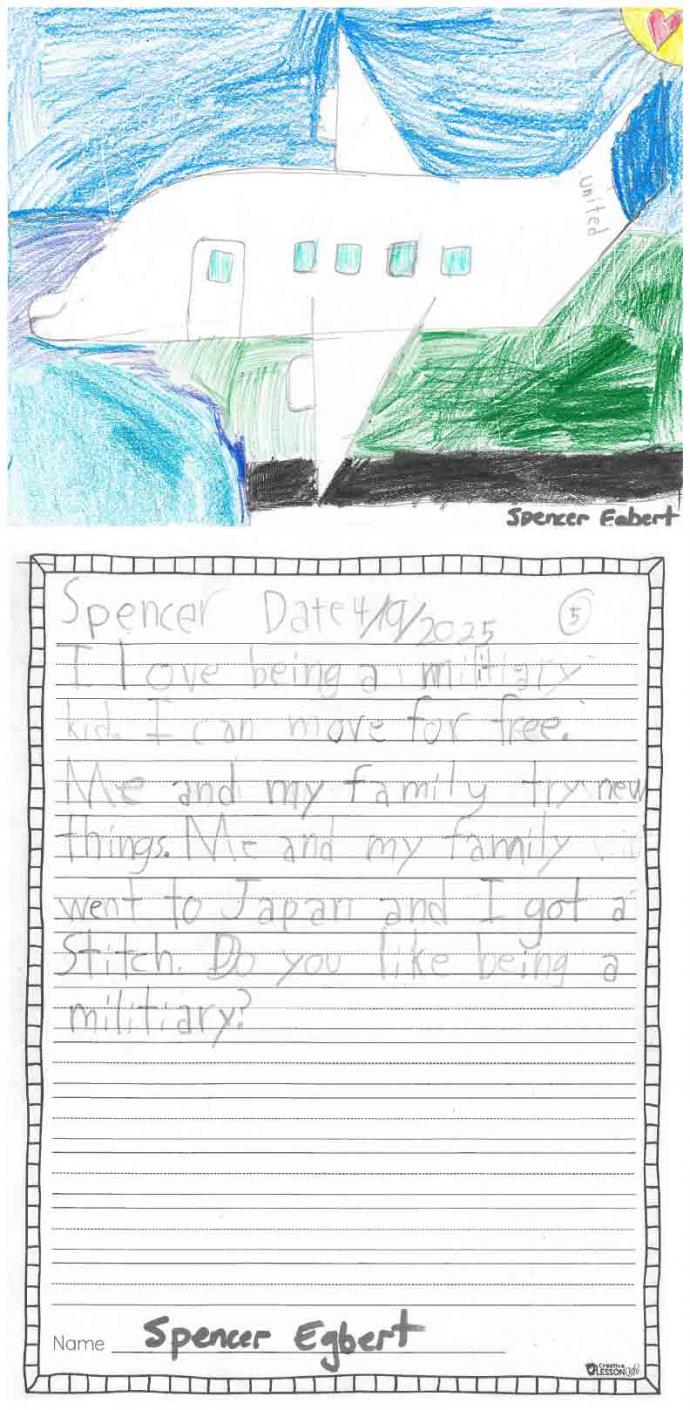 United
Spencer Egbert
Spencer Date 4/10/2025 5
I love being a militiary
kid. I can move for free.
Me and my family try new
things. Me and my family
went to Japan and I got a
Stitch. Do you like being a
militiary?
Name Spencer Egbert
Creative
LESSON Cafe